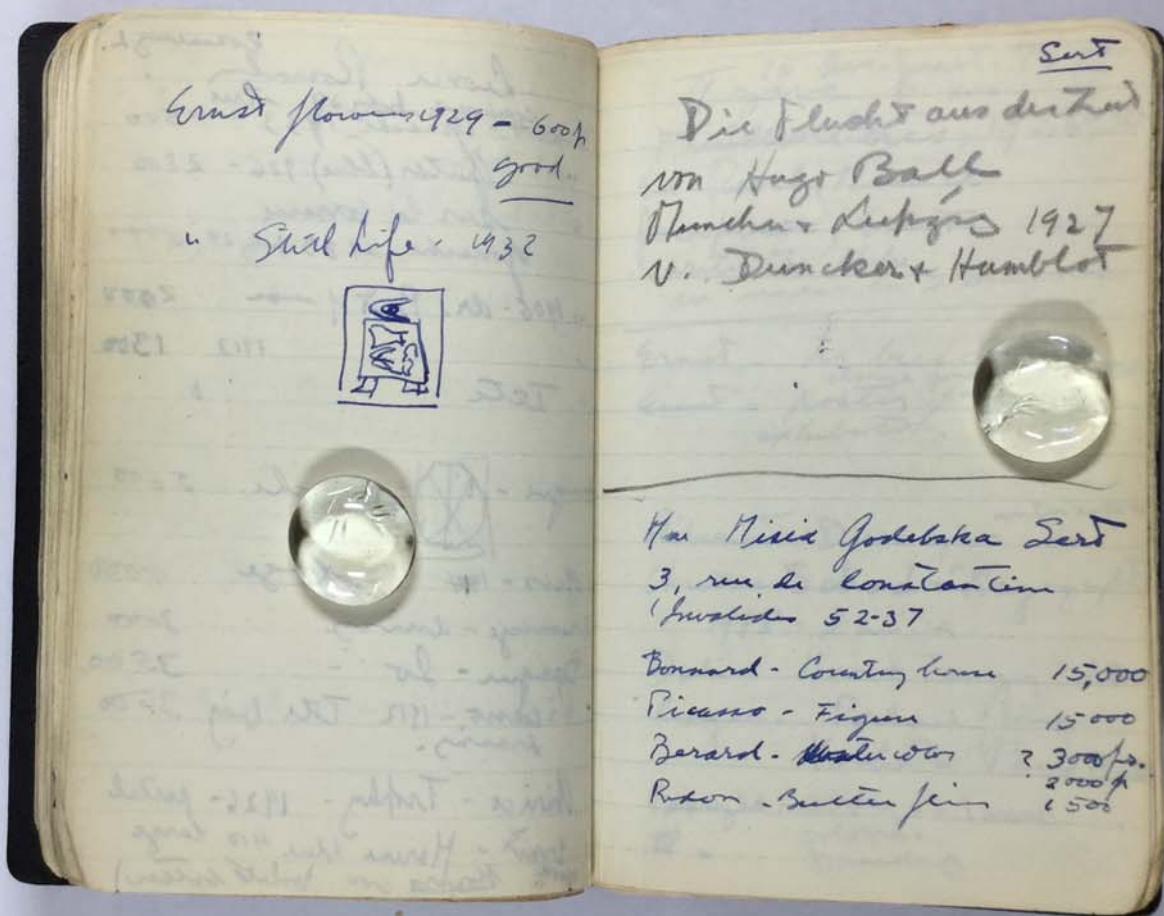 Ernst flowers 1929 - 600 fr
good
" Still Life - 1932
Sert
Die Flucht aus der Zeit
von Hugo Ball
Munchen & Leipzig 1927
v. Duncker & Humblot
Mme Misia Godebska Sert
3, rue de Constantine
Invalides 52-37
Bonnard - Country house 15,000
Picasso - Figure 15000
Berard - Watercolor ? 3000 frs.
2000 fr
Redon - Butterflies 1500